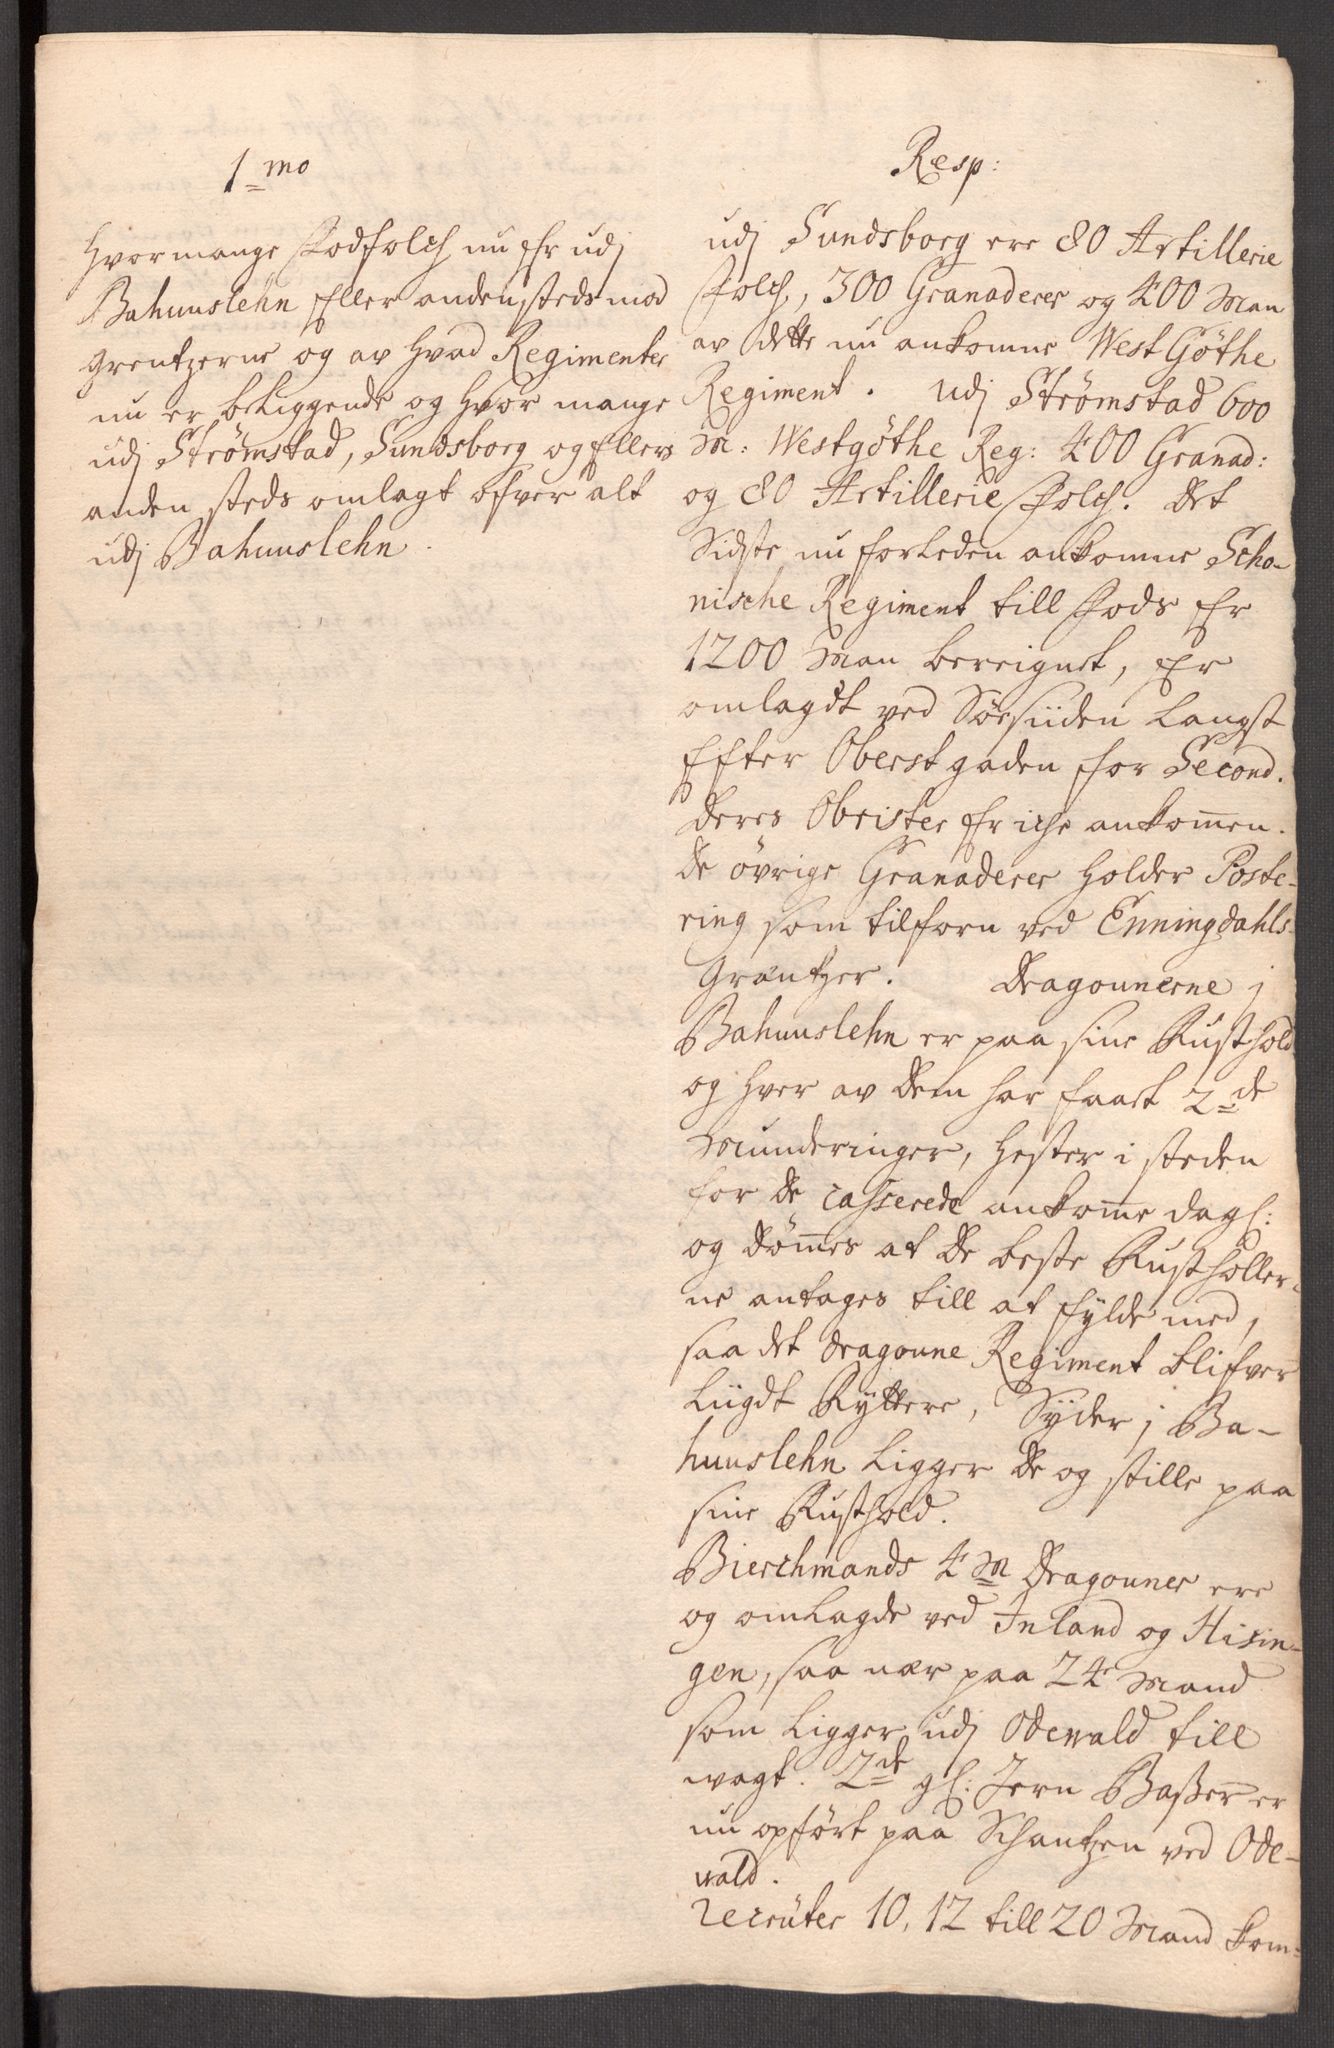 1mo
Hvormange Fodfolch nu Er udj
Bahuuslehn Eller andensteds mod
Grentzerne og av Hvad Regimenter
nu er beliggende og Hvor mange
udj Strømstad, Sundsborg og Ellers
anden steds omlagt ofver alt
udj Bahuuslehn.
Resp:
udj Sundsborg ere 80 Artillerie
Folch, 300 Granaderer og 400 Man
av dette nu ankomne West Göthe
Regiment. Udj Strømstad 600
M: Westgöthe Reg: 400 Granad:
og 80 Artillerie Folch. Det
Sidste nu forleden ankomne Scho-
nische Regiment till Fods Er
1200 Man bereignet, Er
omlagdt ved Söesiiden Langst
Efter Oberst gaden for Second.
Deres Obrister Er iche ankomen.
De övrige Granaderer Holder Poste-
ring som tilforn ved Enningdahls-
Grantzer. Dragounerne j
Bahuuslehn er paa sine Rusthold
og Hver av dem har faaet 2de
Munderinger, Hester i steden
for de casserede ankome dagl:
og dömes at de beste Rustholler-
ne antages till at fylde med,
saa det dragoune Regiment blifver
Liigdt Ryttere, Syder j Ba-
huuslehn Ligger de og stille paa
sine Rusthold.
Bierchmands 4 M Dragouner ere
og omlagde ved Inland og Hisin-
gen, saa nær paa 24 Mand
som Ligger udj Odewald till
wagt. 2de gl: Jern Baßer er
nu opfört paa Schantzen ved Ode-
wald.
recruter 10, 12 till 20 Mand kom-